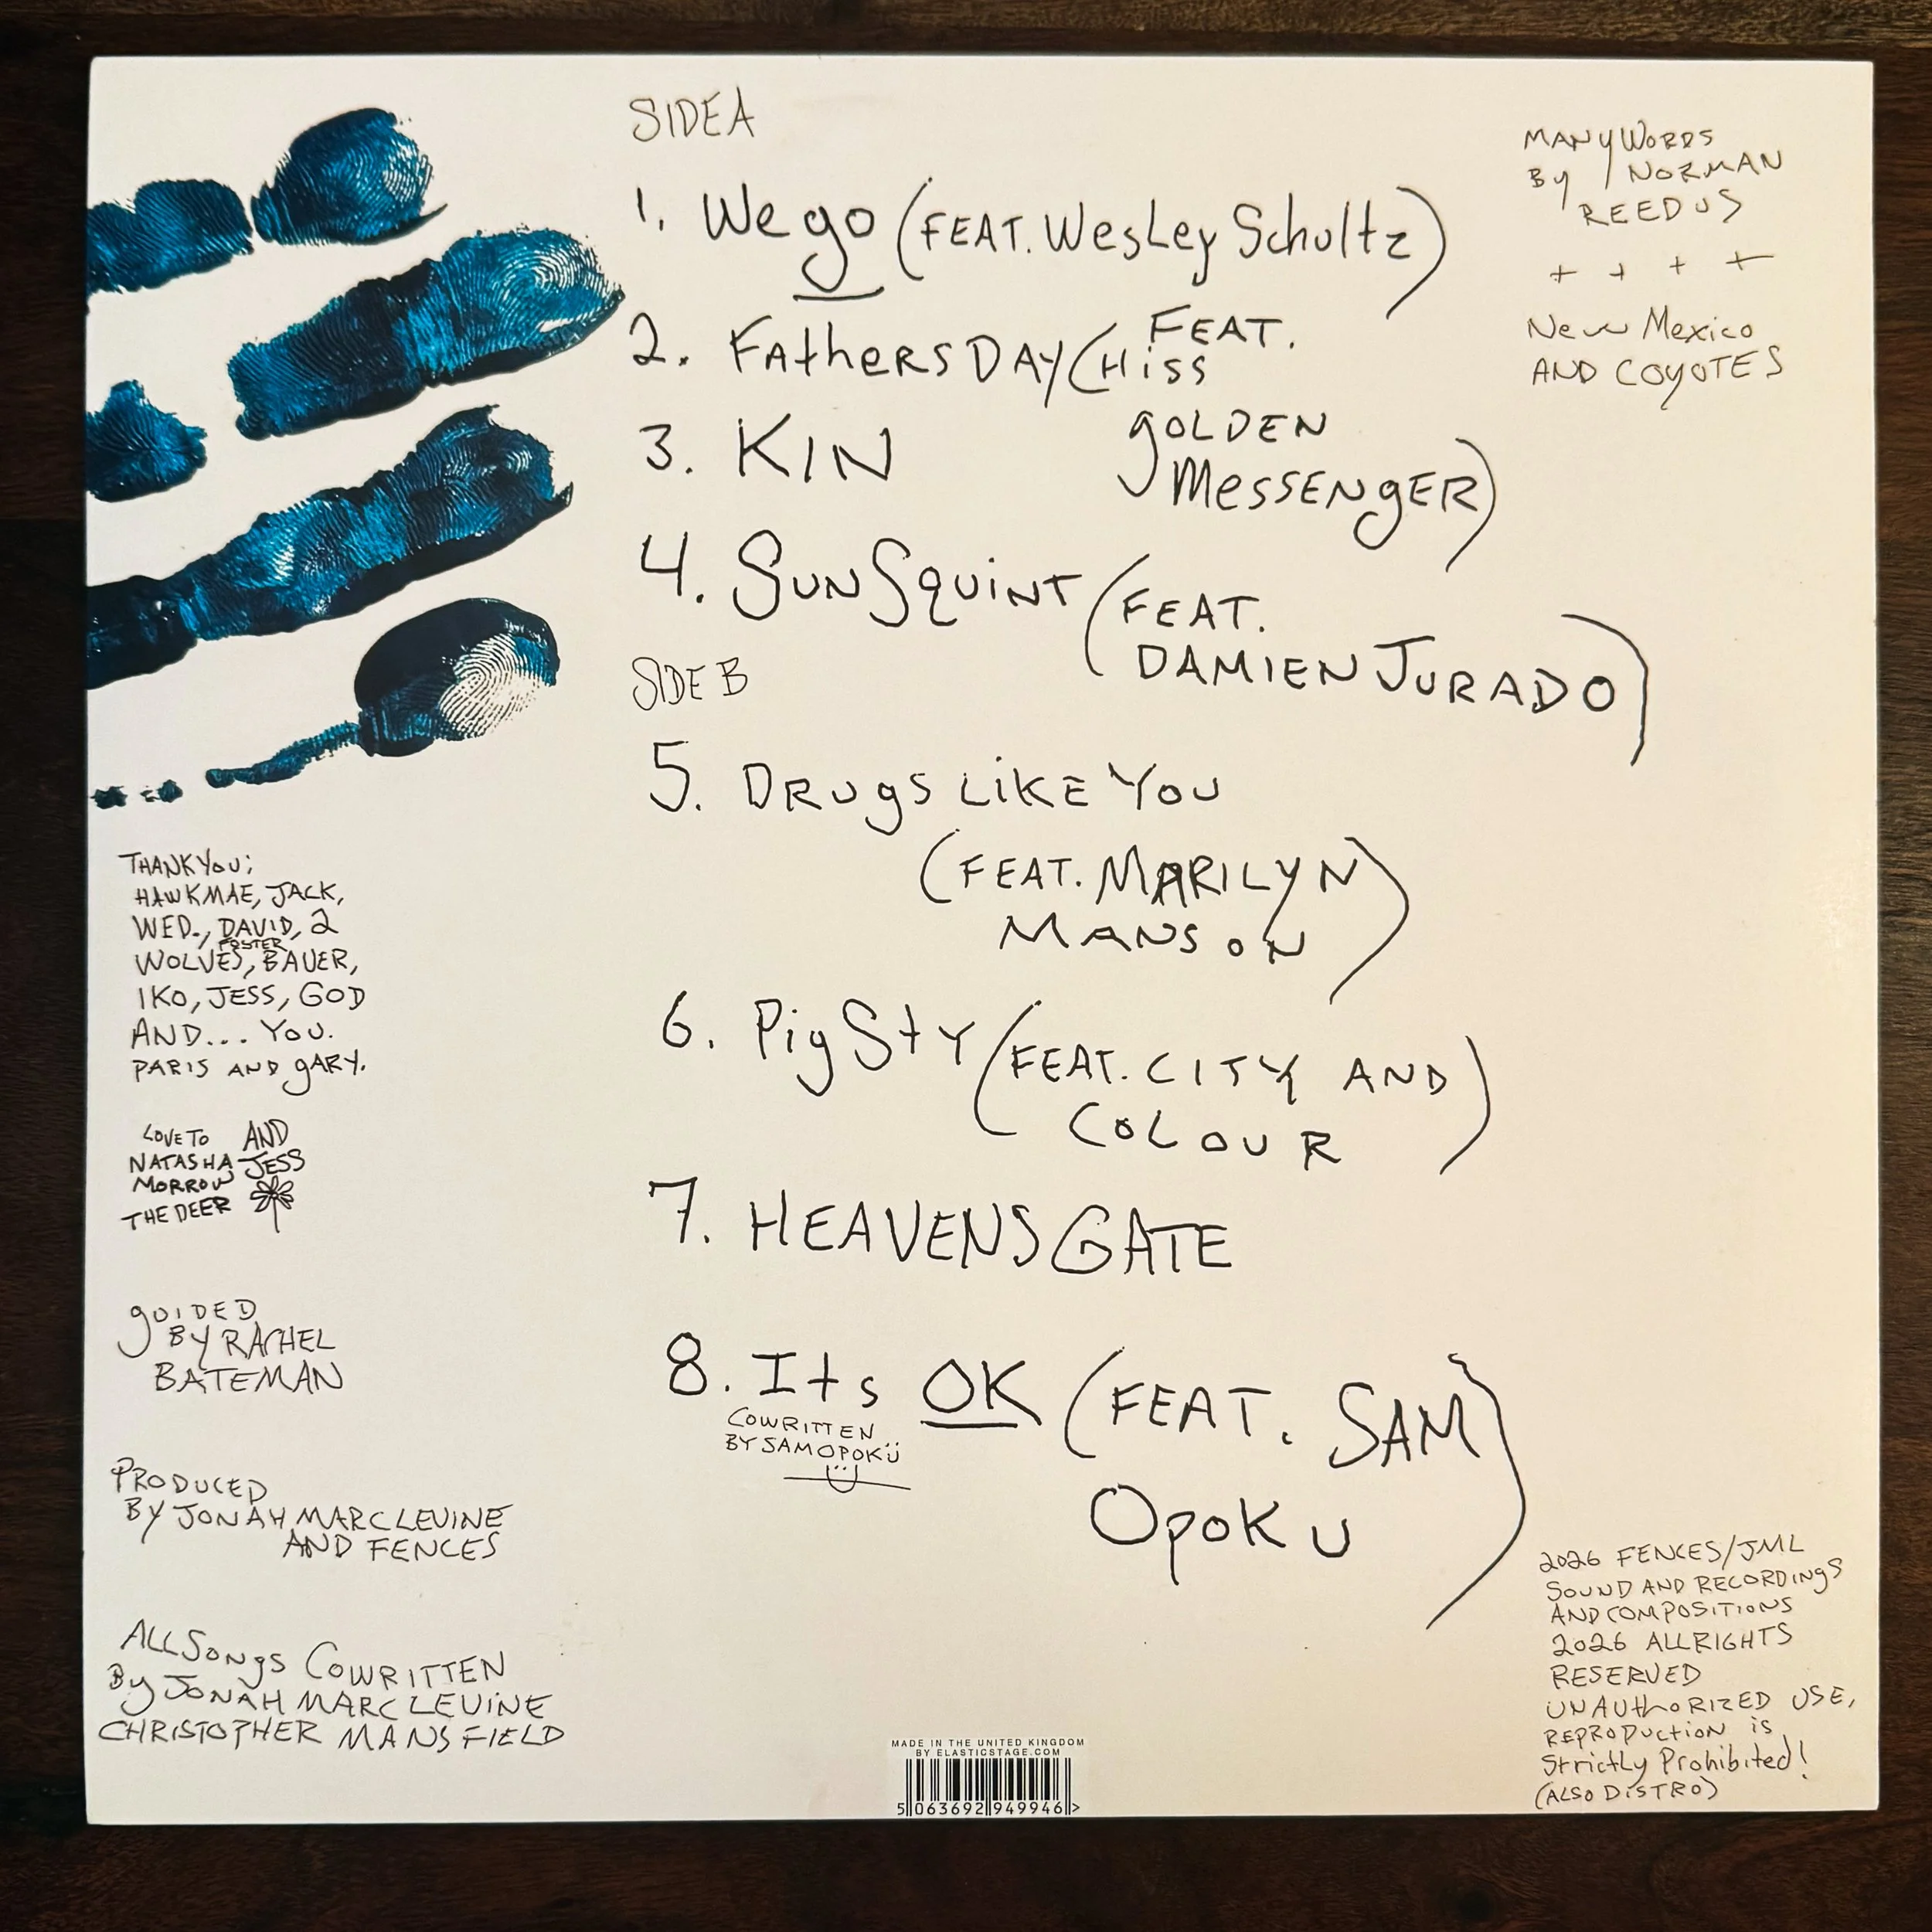 SIDE A
1. We go (FEAT. Wesley Schultz)
2. FAthers DAY (FEAT.
Hiss
golden
Messenger)
3. KIN
4. Sun Squint (FEAT.
DAMIEN JURADO)
SIDE B
5. DRUgS LiKE YOU
(FEAT. MARILYN
MANSON)
6. Pig Sty (FEAT. CITY AND
COLOUR)
7. HEAVENS GATE
8. Its OK (FEAT. SAM
Opoku)
COWRITTEN
BY SAM OPOKU
MANY WORDS
By NORMAN
REEDUS
+ + + +
New Mexico
AND COYOTES
THANK YOU;
HAWKMAE, JACK,
WED., DAVID, 2
FOSTER
WOLVES, BAUER,
IKO, JESS, GOD
AND... YOU.
PARIS AND gARY.
LOVE TO AND
NATASHA JESS
MORROW
THE DEER
gUIDED
BY RACHEL
BATEMAN
PRODUCED
BY JONAH MARC LEVINE
AND FENCES
ALL SONgS COWRITTEN
By JONAH MARC LEVINE
CHRISTOPHER MANSFIELD
MADE IN THE UNITED KINGDOM
BY ELASTICSTAGE.COM
5 063692 949946 >
2026 FENCES/JML
SOUND AND RECORDINgS
AND COMPOSITIONS
2026 ALL RIGHTS
RESERVED
UNAUthORIZED USE,
REPRODUCTION is
Strictly Prohibited!
(ALSO DISTRO)